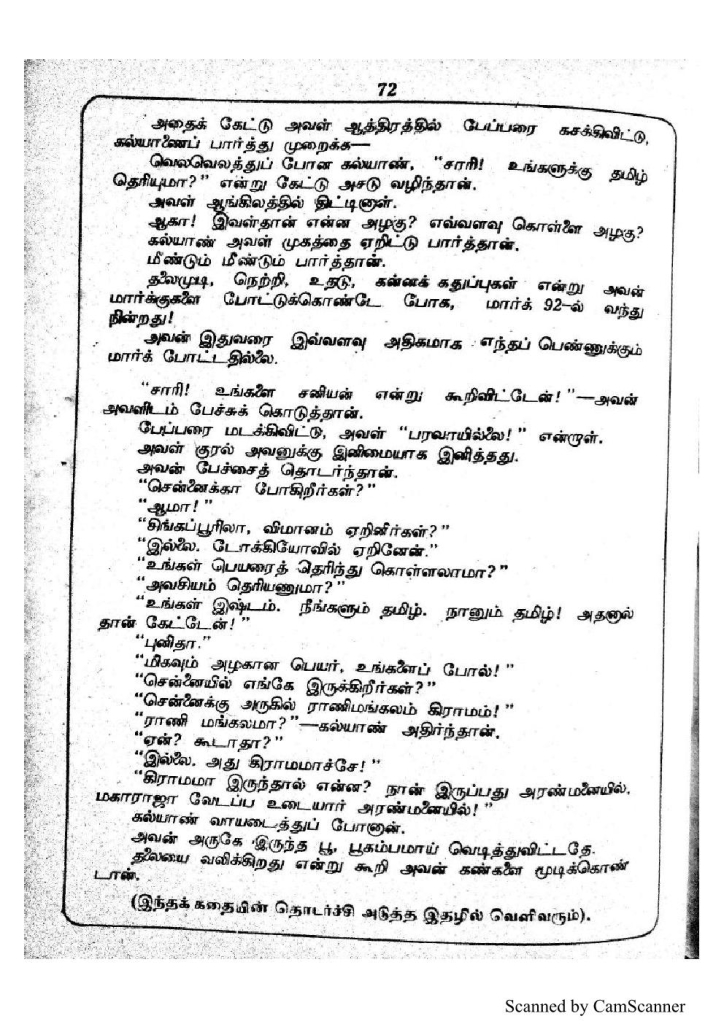 72
அதைக் கேட்டு அவள் ஆத்திரத்தில் பேப்பரை கசக்கிவிட்டு,
கல்யாணைப் பார்த்து முறைக்க—
வெலவெலத்துப் போன கல்யாண், “சாரி! உங்களுக்கு தமிழ்
தெரியுமா?” என்று கேட்டு அசடு வழிந்தான்.
அவள் ஆங்கிலத்தில் திட்டினாள்.
ஆகா! இவள்தான் என்ன அழகு? எவ்வளவு கொள்ளை அழகு?
கல்யாண் அவள் முகத்தை ஏறிட்டு பார்த்தான்.
மீண்டும் மீண்டும் பார்த்தான்.
தலைமுடி, நெற்றி, உதடு, கன்னக் கதுப்புகள் என்று அவன்
மார்க்குகளை போட்டுக்கொண்டே போக, மார்க் 92-ல் வந்து
நின்றது!
அவன் இதுவரை இவ்வளவு அதிகமாக எந்தப் பெண்ணுக்கும்
மார்க் போட்டதில்லை.
“சாரி! உங்களை சனியன் என்று கூறிவிட்டேன்!”—அவன்
அவளிடம் பேச்சுக் கொடுத்தான்.
பேப்பரை மடக்கிவிட்டு, அவள் “பரவாயில்லை!” என்றாள்.
அவள் குரல் அவனுக்கு இனிமையாக இனித்தது.
அவன் பேச்சைத் தொடர்ந்தான்.
“சென்னைக்கா போகிறீர்கள்?”
“ஆமா!”
“சிங்கப்பூரிலா, விமானம் ஏறினீர்கள்?”
“இல்லை. டோக்கியோவில் ஏறினேன்.”
“உங்கள் பெயரைத் தெரிந்து கொள்ளலாமா?”
“அவசியம் தெரியணுமா?”
“உங்கள் இஷ்டம். நீங்களும் தமிழ். நானும் தமிழ்! அதனால்
தான் கேட்டேன்!”
“புனிதா.”
“மிகவும் அழகான பெயர், உங்களைப் போல்!”
“சென்னையில் எங்கே இருக்கிறீர்கள்?”
“சென்னைக்கு அருகில் ராணிமங்கலம் கிராமம்!”
“ராணி மங்கலமா?”—கல்யாண் அதிர்ந்தான்.
“ஏன்? கூடாதா?”
“இல்லை. அது கிராமமாச்சே!”
“கிராமமா இருந்தால் என்ன? நான் இருப்பது அரண்மனையில்.
மகாராஜா வேடப்ப உடையார் அரண்மனையில்!”
கல்யாண் வாயடைத்துப் போனான்.
அவன் அருகே இருந்த பூ, பூகம்பமாய் வெடித்துவிட்டதே.
தலையை வலிக்கிறது என்று கூறி அவன் கண்களை மூடிக்கொண்
டான்.
(இந்தக் கதையின் தொடர்ச்சி அடுத்த இதழில் வெளிவரும்).
Scanned by CamScanner